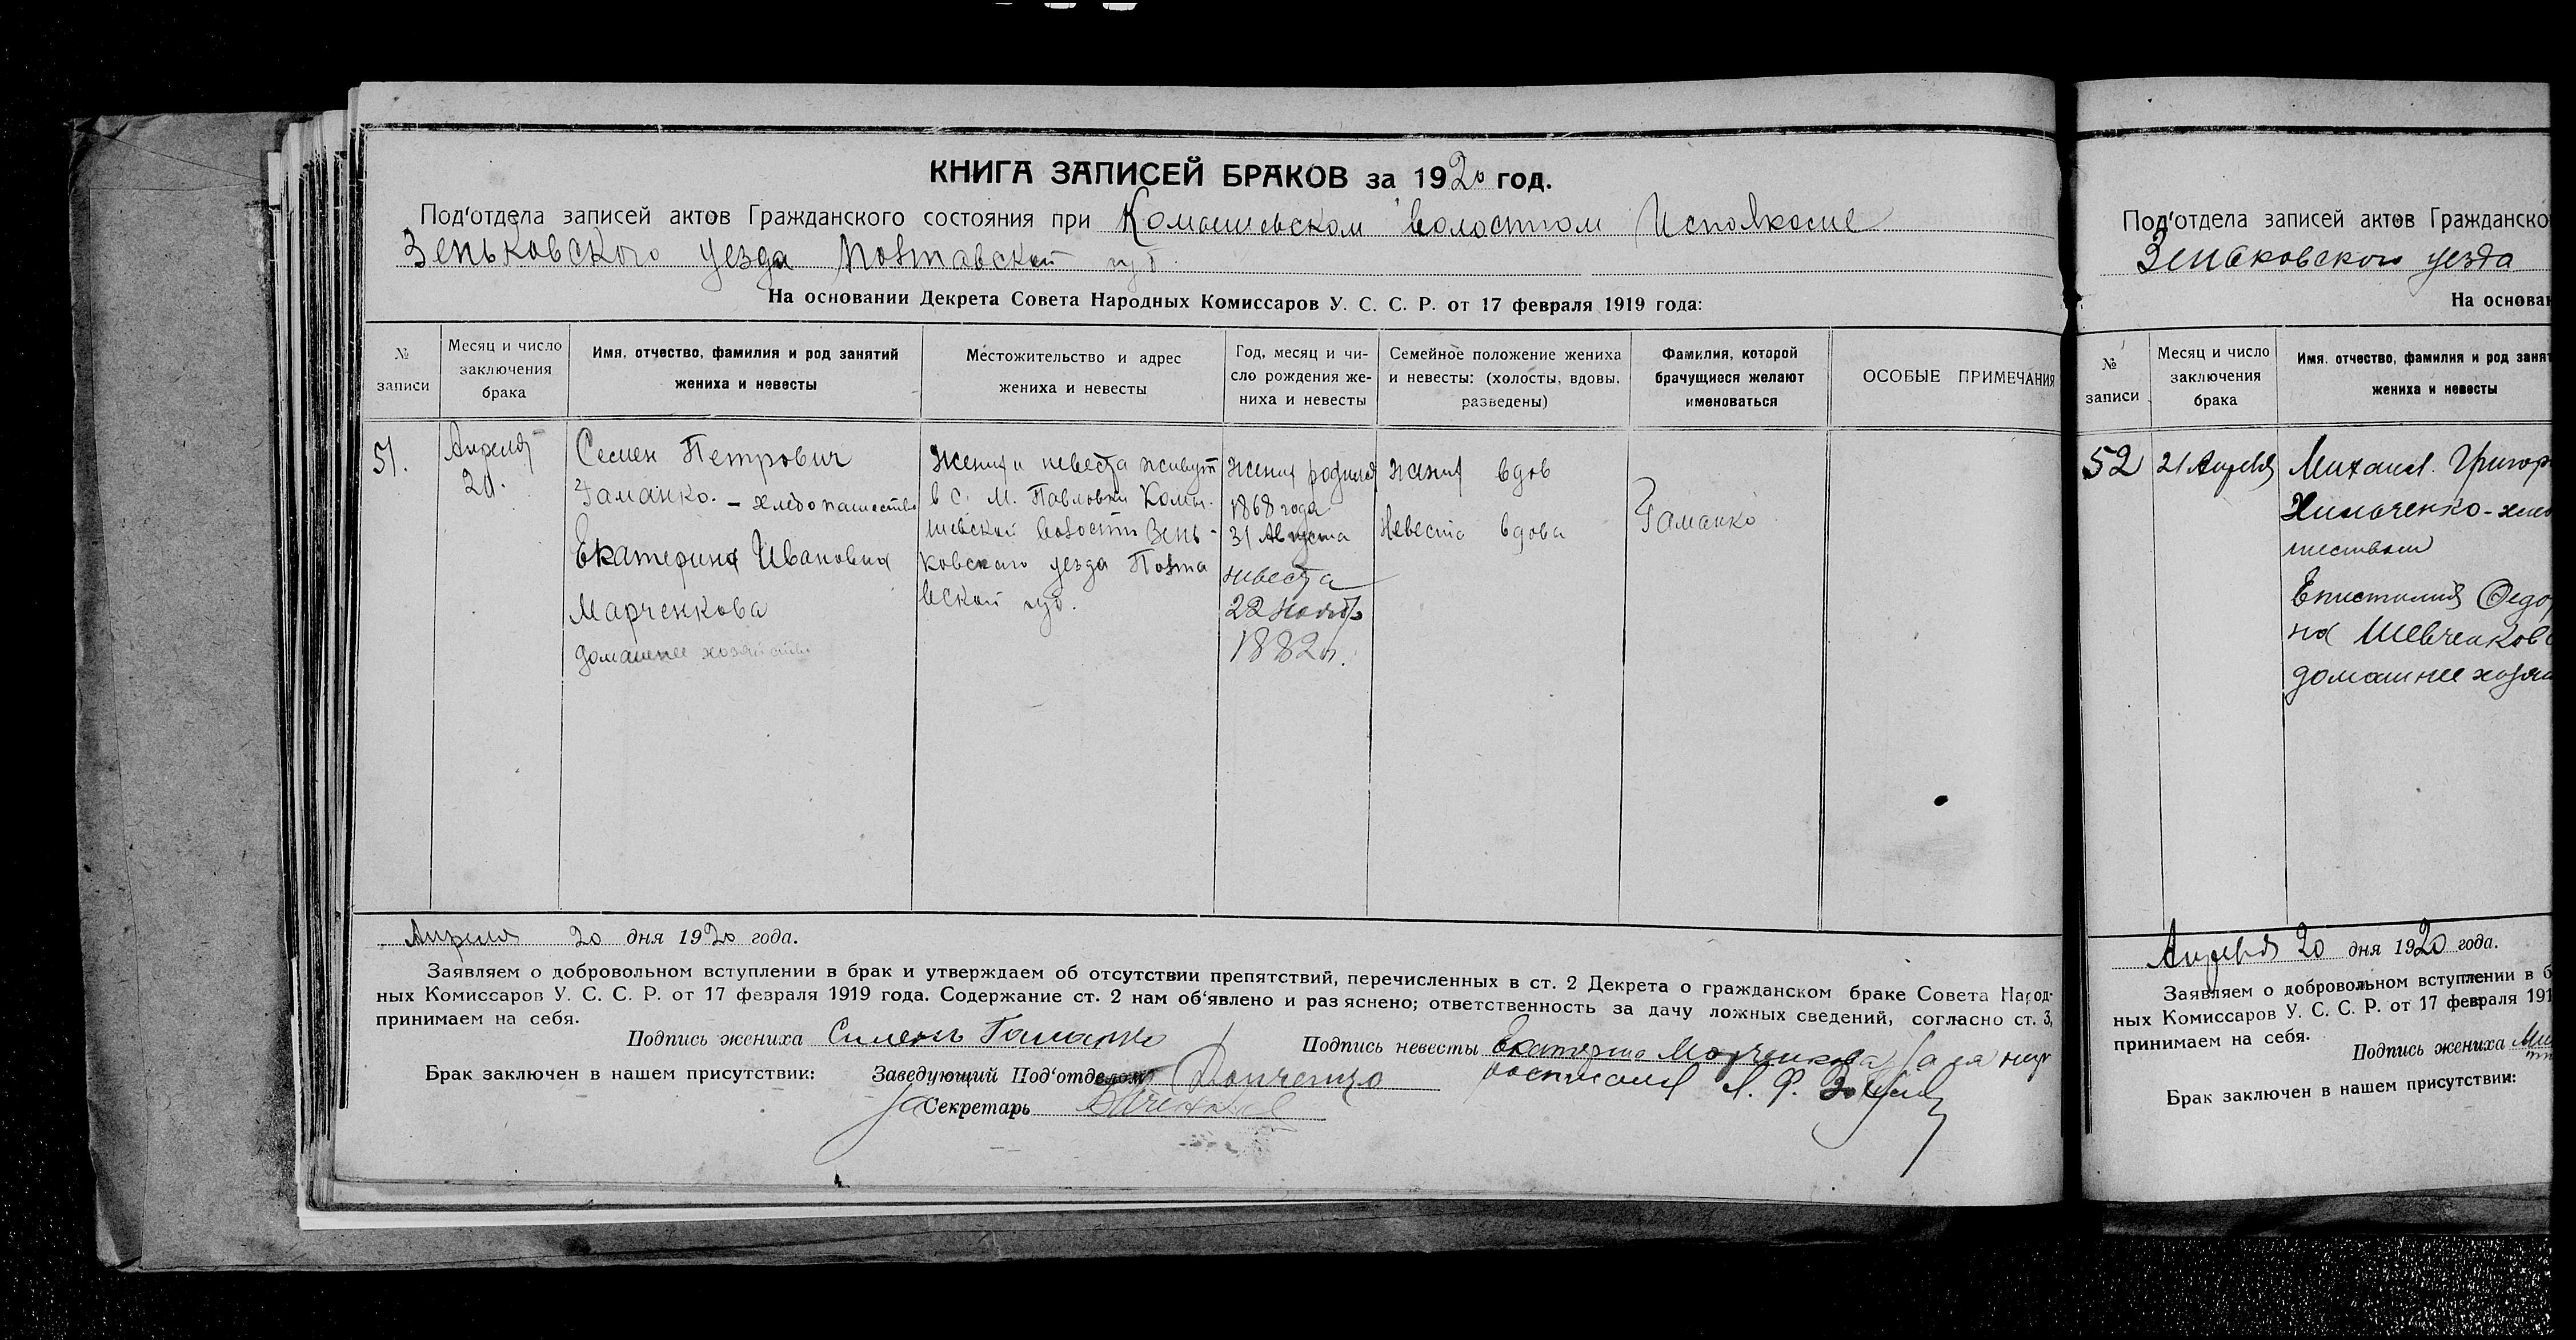 КНИГА ЗАПИСЕЙ БРАКОВ за 1920 год.
Под'отдела записей актов Гражданского состояния при Комышевском волостном Исполкоме
Зеньковского уезда Полтавской губ.
На основании Декрета Совета Народных Комиссаров У. С. С. Р. от 17 февраля 1919 года:
№ записи
Месяц и число заключения брака
Имя, отчество, фамилия и род занятий жениха и невесты
Местожительство и адрес жениха и невесты
Год, месяц и чи-
сло рождения же-
ниха и невесты
Семейное положение жениха
и невесты: (холосты, вдовы,
разведены)
Фамилия, которой
брачущиеся желают
именоваться
ОСОБЫЕ ПРИМЕЧАНИЯ
51.
Апреля
20.
Семен Петрович
Гаманко. - хлебопашество
Екатерина Ивановна
Марченкова
домашнее хозяйство
Жених и невеста живут
в с. М. Павловки Комы-
шевской волости Зень-
ковского уезда Полта
вской губ.
Жених родился
1868 года
31 Августа
невеста
22 Ноября
1882 г.
Жених вдов
Невеста вдова
Гаманко
Апреля 20 дня 1920 года.
Заявляем о добровольном вступлении в брак и утверждаем об отсутствии препятствий, перечисленных в ст. 2 Декрета о гражданском браке Совета Народ-
ных Комиссаров У. С. С. Р. от 17 февраля 1919 года. Содержание ст. 2 нам об'явлено и раз'яснено; ответственность за дачу ложных сведений, согласно ст. 3,
принимаем на себя.
Подпись жениха Сименъ Гаманко
Подпись невесты Екатерина Марченкова, а за нея
Брак заключен в нашем присутствии:
Заведующий Под'отделом
росписался Я. Ф.
За Секретарь
Под'отдела записей актов Гражданско
Зеньковского уезда
На основан
№ записи
Месяц и число
заключения
брака
Имя, отчество, фамилия и род занят
жениха и невесты
52
21 Апреля
Михаил Григор
Химоченко - хлеб
шеством
Епистимия Федо
на Шевченков
домашнее хозяй
Апреля 20 дня 1920 года.
Заявляем о добровольном вступлении в б
ных Комиссаров У. С. С. Р. от 17 февраля 191
принимаем на себя.
Подпись жениха
Брак заключен в нашем присутствии: